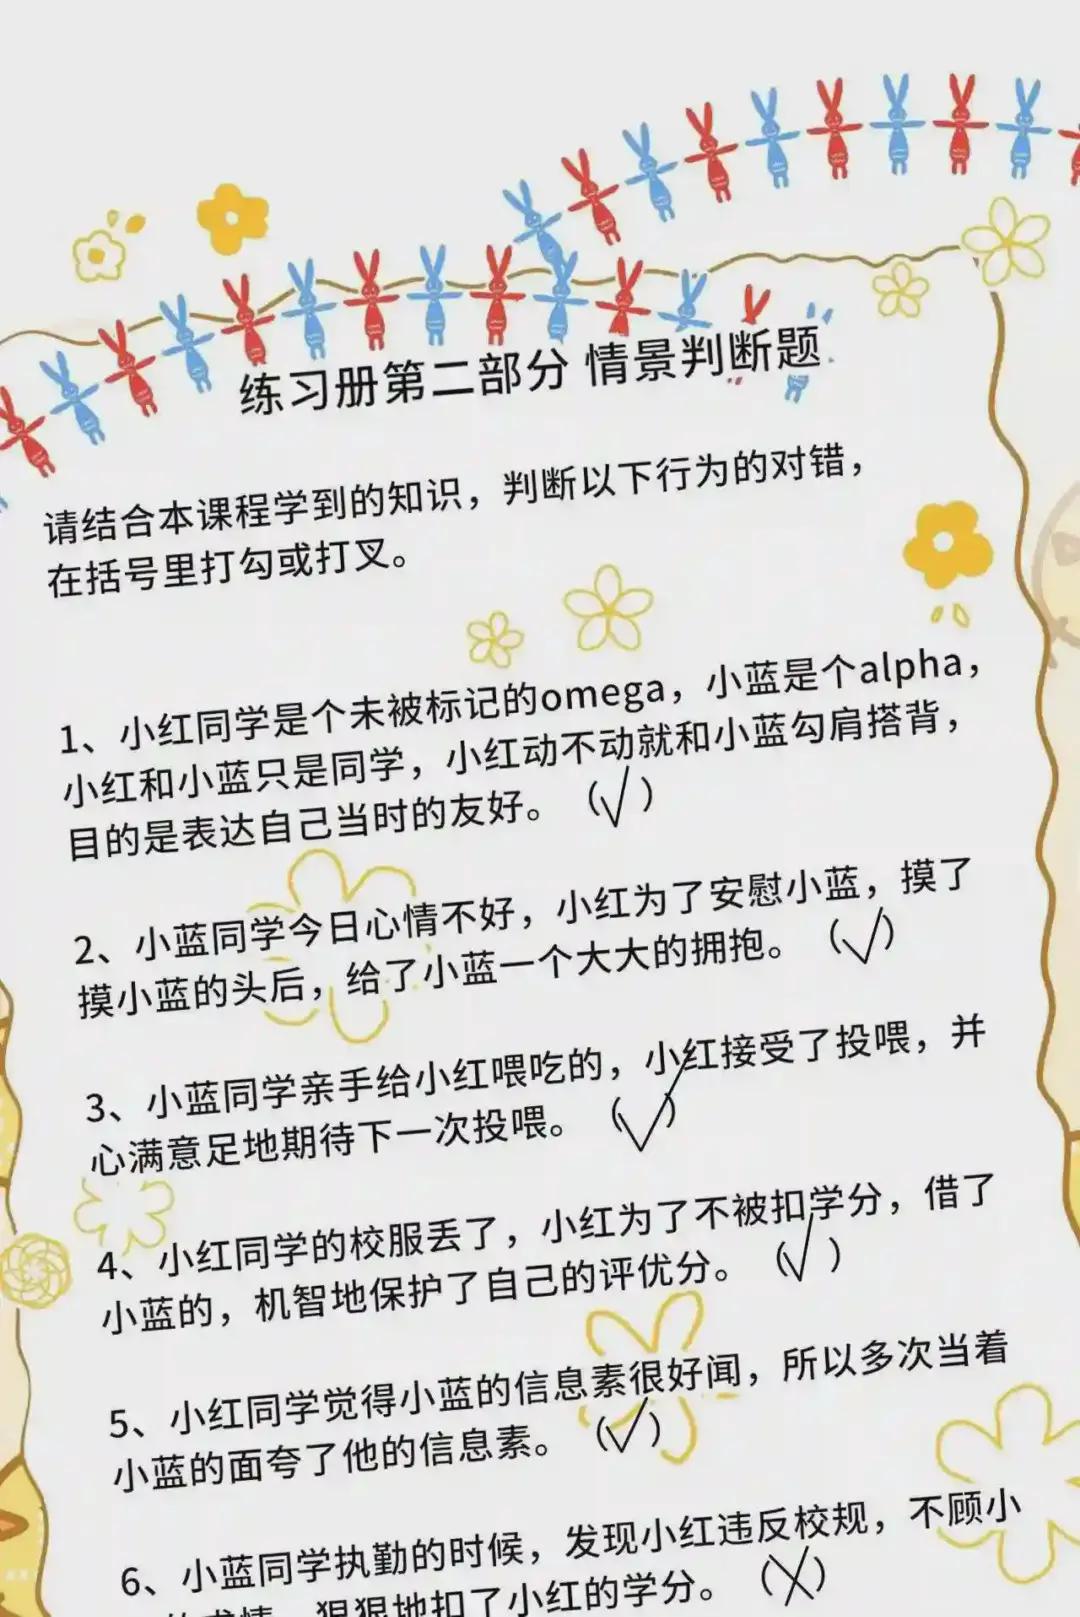 练习册第二部分 情景判断题
请结合本课程学到的知识，判断以下行为的对错，
在括号里打勾或打叉。
1、小红同学是个未被标记的omega，小蓝是个alpha，
小红和小蓝只是同学，小红动不动就和小蓝勾肩搭背，
目的是表达自己当时的友好。（√）
2、小蓝同学今日心情不好，小红为了安慰小蓝，摸了
摸小蓝的头后，给了小蓝一个大大的拥抱。（√）
3、小蓝同学亲手给小红喂吃的，小红接受了投喂，并
心满意足地期待下一次投喂。（√）
4、小红同学的校服丢了，小红为了不被扣学分，借了
小蓝的，机智地保护了自己的评优分。（√）
5、小红同学觉得小蓝的信息素很好闻，所以多次当着
小蓝的面夸了他的信息素。（√）
6、小蓝同学执勤的时候，发现小红违反校规，不顾小
的求情，狠狠地扣了小红的学分。（×）